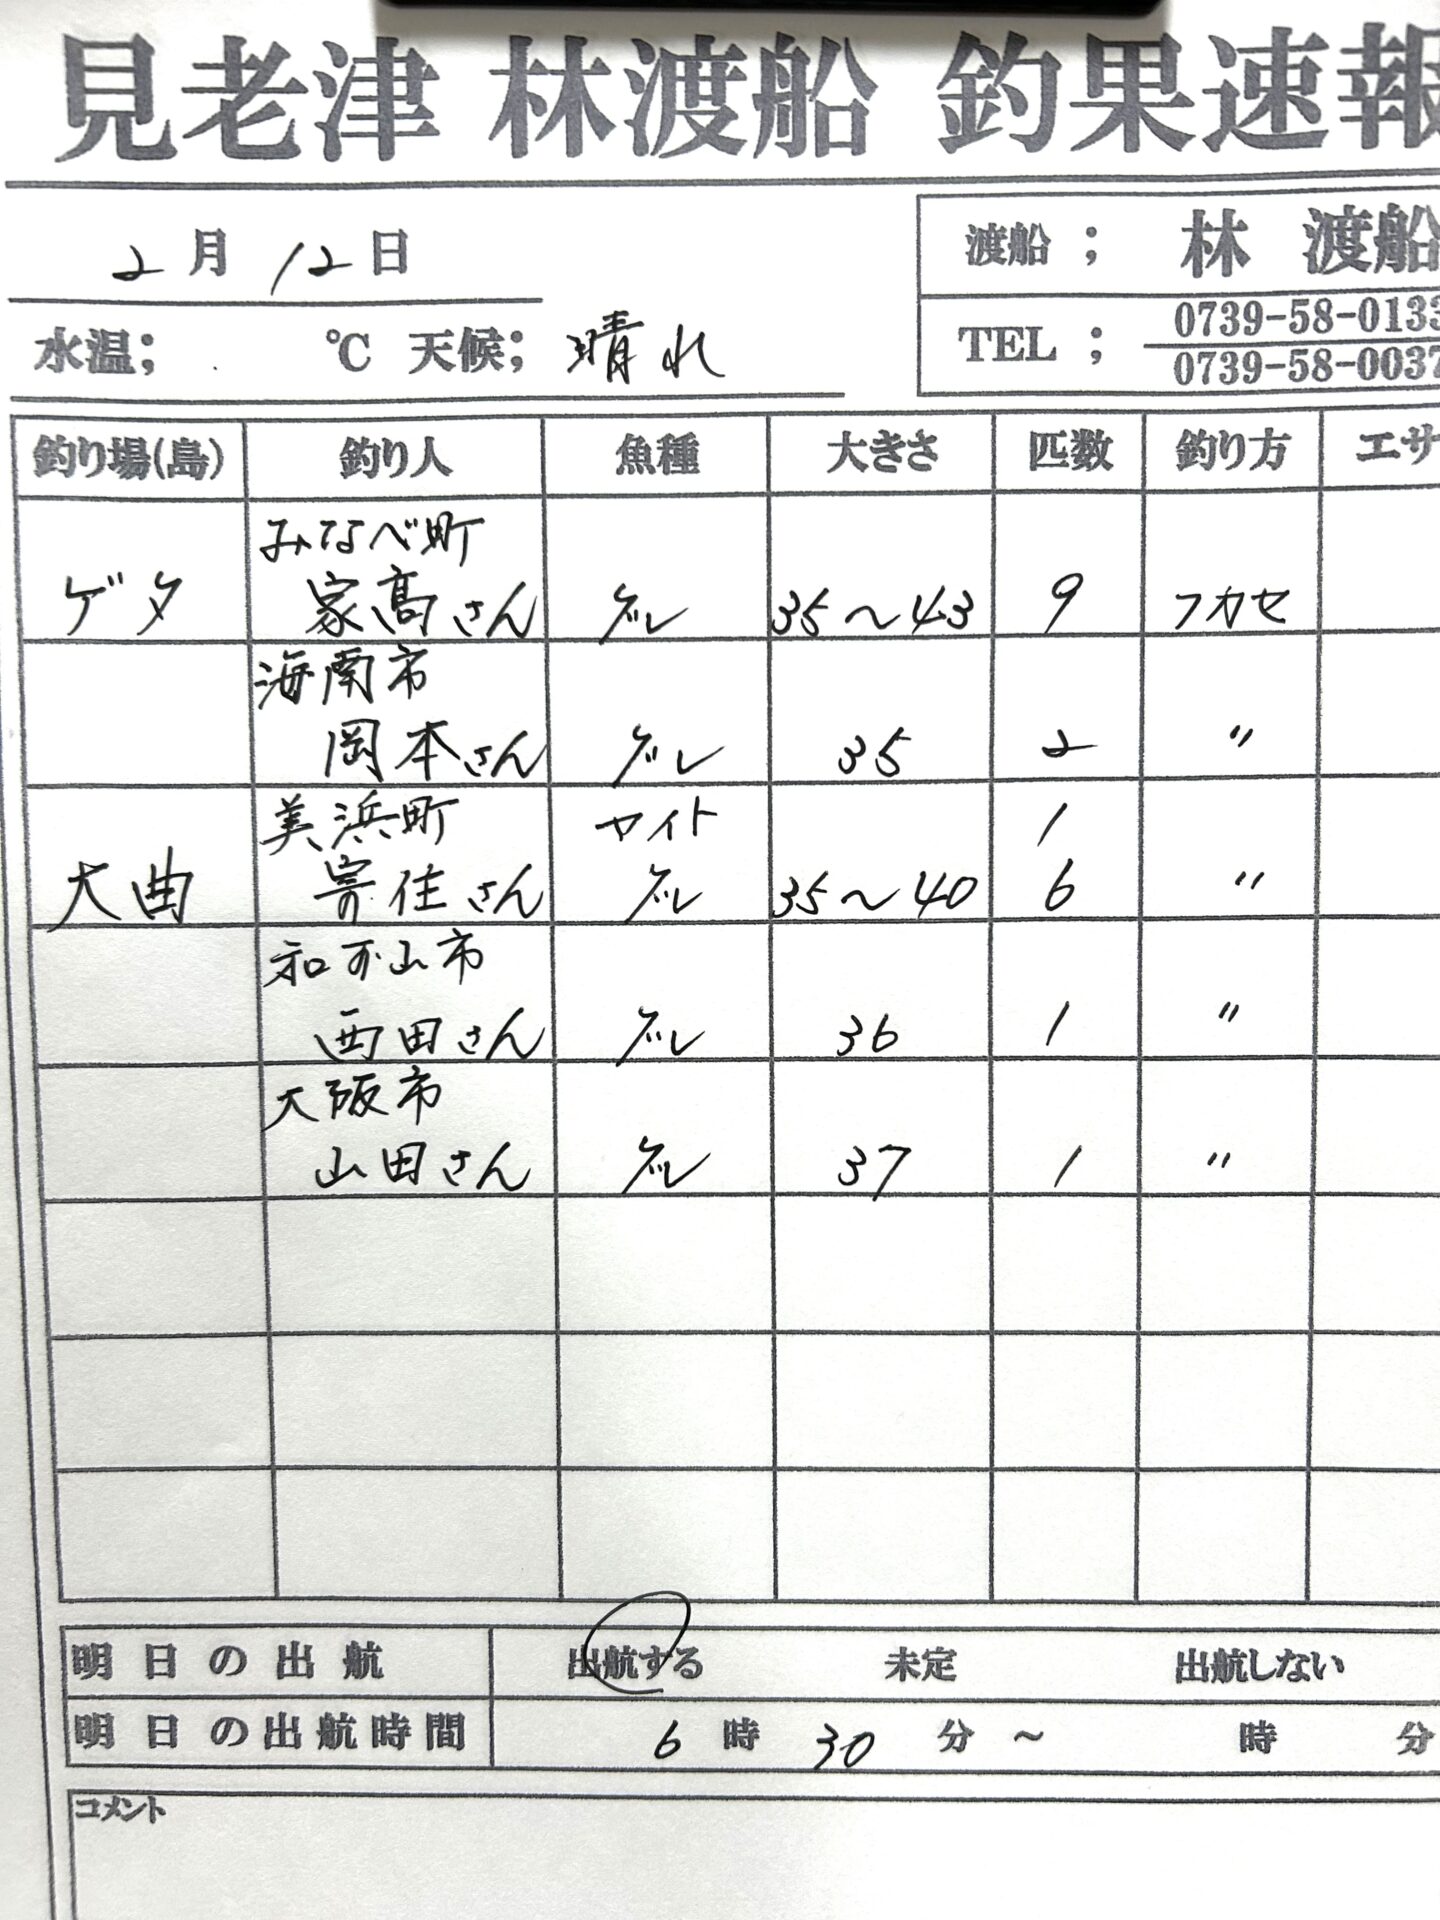 見老津 林渡船 釣果速報
2月12日
渡船 ; 林 渡船
水温; ℃ 天候; 晴れ
TEL ; 0739-58-0133
0739-58-0037
釣り場(島) 釣り人 魚種 大きさ 匹数 釣り方 エサ
みなべ町
ゲタ 家高さん グレ 35〜43 9 フカセ
海南市
岡本さん グレ 35 2 〃
美浜町 サイト 1
大曲 寄住さん グレ 35〜40 6 〃
和可山市
西田さん グレ 36 1 〃
大阪市
山田さん グレ 37 1 〃
明日の出航 出航する 未定 出航しない
明日の出航時間 6時30分〜 時 分
コメント